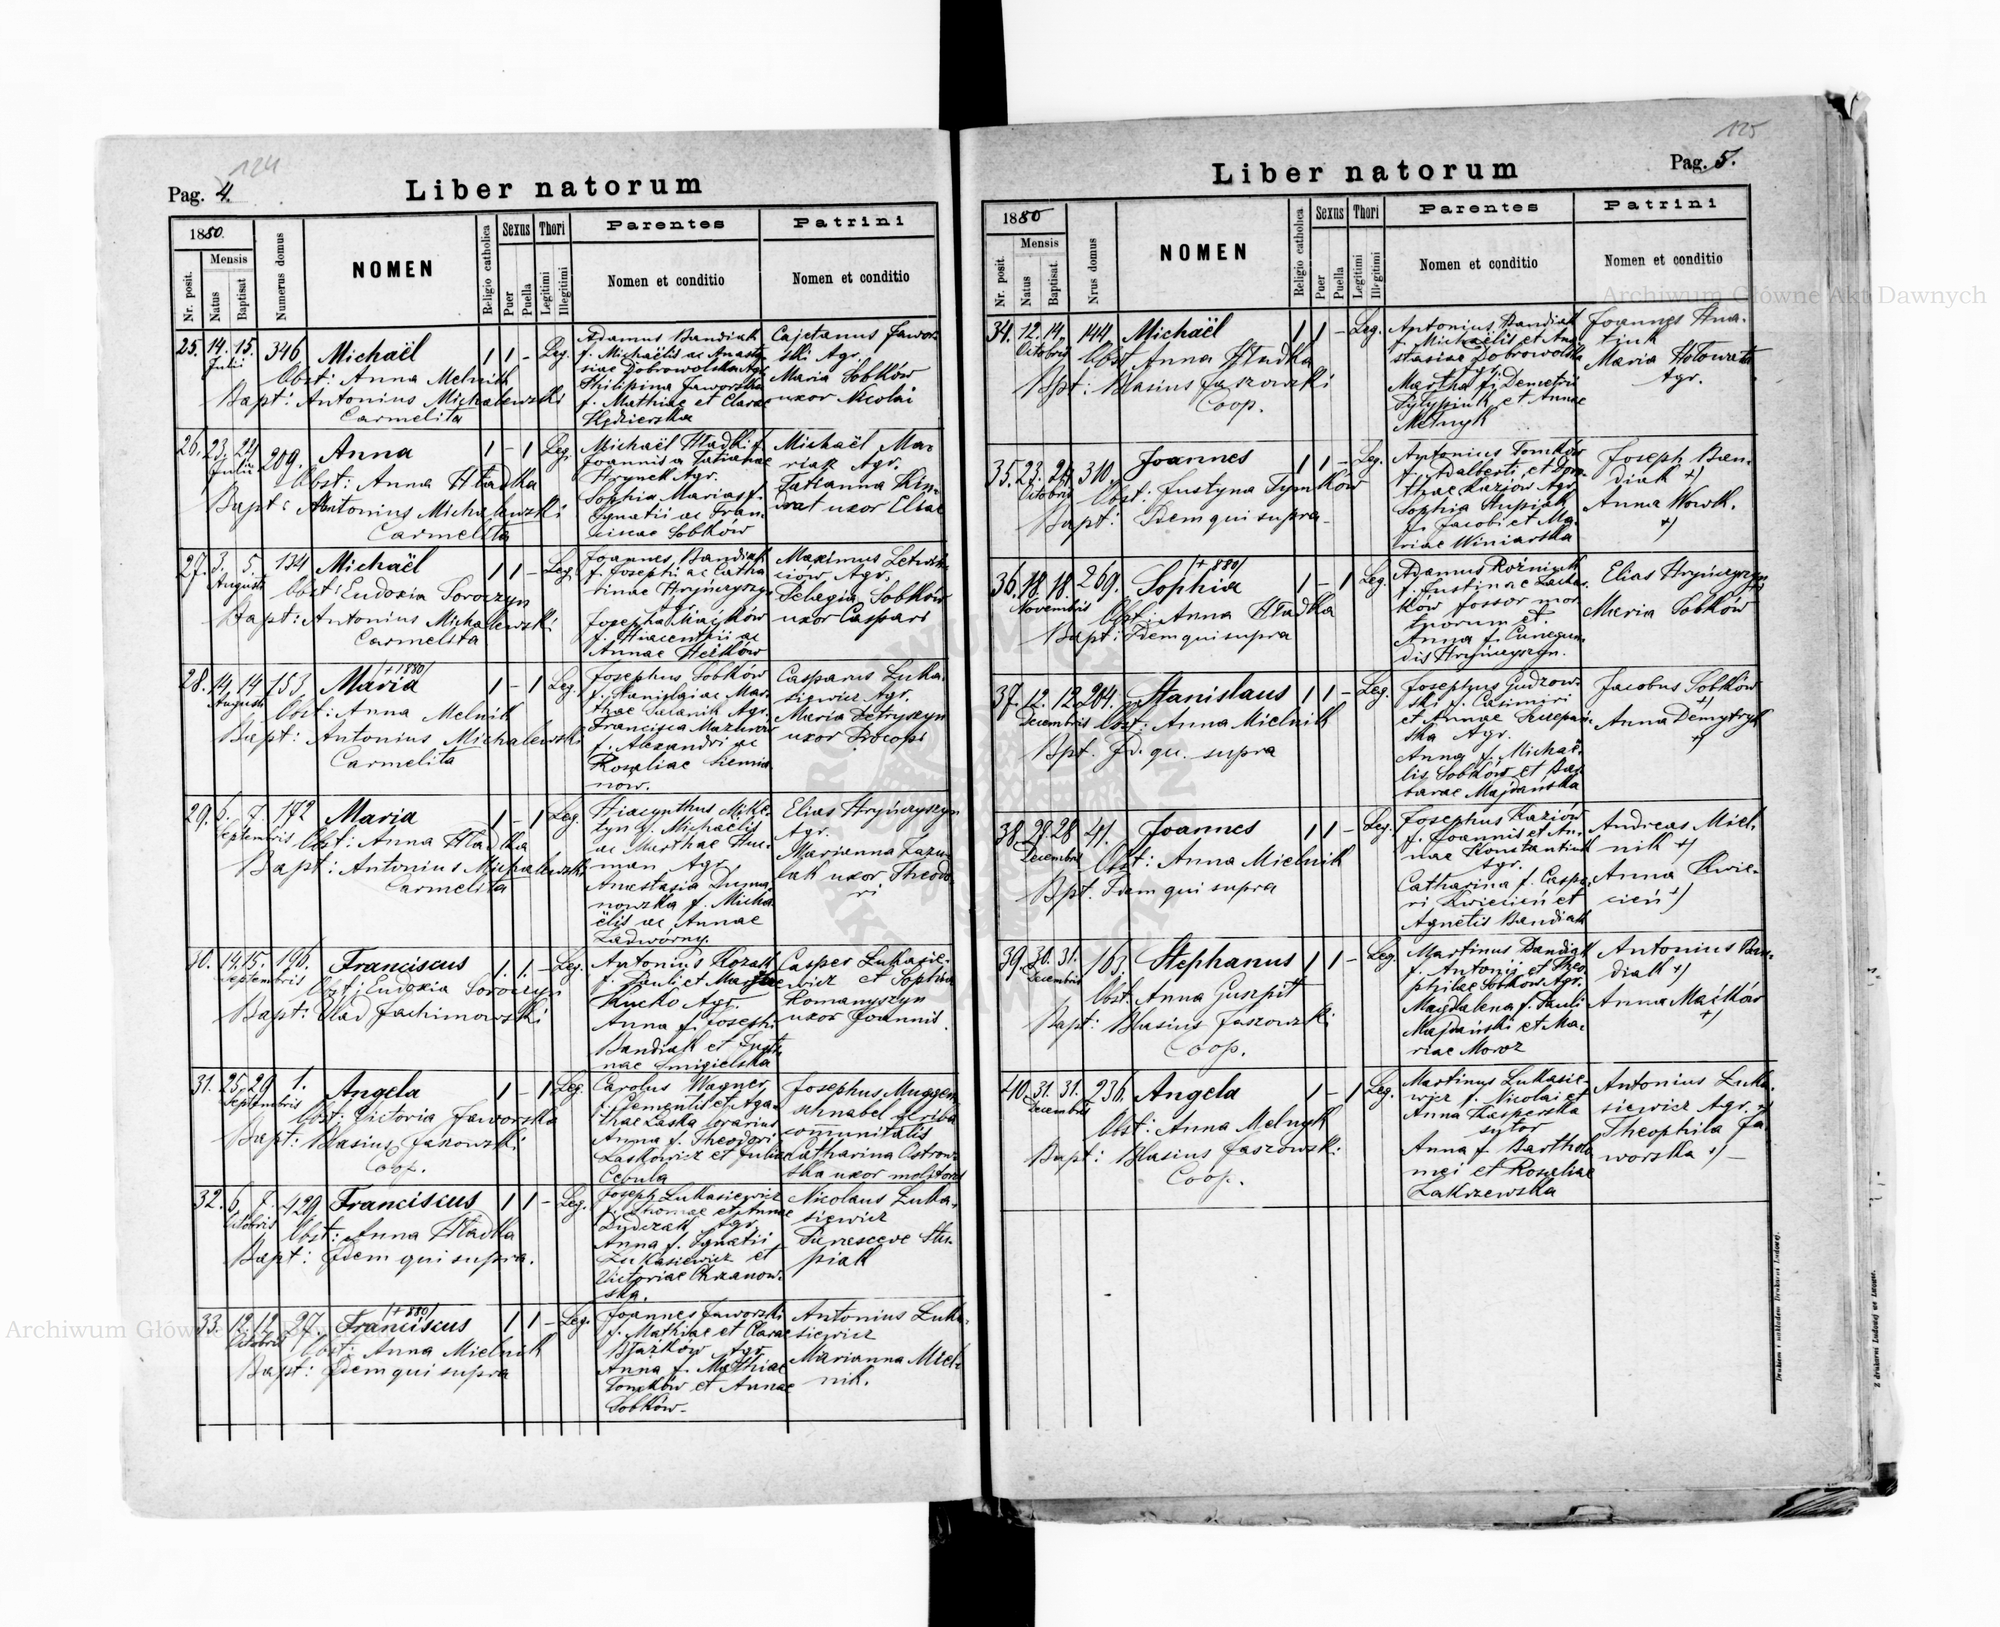 124
Pag. 4.
Liber natorum
1880.
Mensis
Nr. posit.
Natus
Baptisat
Numerus domus
NOMEN
Religio catholica
Sexus
Puer
Puella
Thori
Legitimi
Illegitimi
Parentes
Nomen et conditio
Patrini
Nomen et conditio
25. 14. 15. 346 Michaël 1 1 - Leg.
Julii
Obst: Anna Melnik
Bapt: Antonius Michalewski
Carmelita
Adamus Bandiak
f. Michaëlis ac Anasta
siae Dobrowolska Agr.
Philipina Jaworska
f. Mathiae et Clarae
Kędzierska
Cajetanus Jawor
ski Agr.
Maria Sobków
uxor Nicolai
26. 23. 24. 209. Anna 1 - 1 Leg.
Julii
Obst: Anna Hładka
Bapt: Antonius Michalewski
Carmelita
Michaël Hładki f.
Joannis a Tatianae
Hrynek Agr.
Sophia Marias f.
Ignatii ac Fran
ciscae Sobków
Michaël Ma
riasz Agr.
Tatianna Kin
drat uxor Eliae
27. 3. 5. 134 Michaël 1 1 - Leg.
Augusti
Obst: Eudoxia Soroczyn
Bapt: Antonius Michalewski
Carmelita
Joannes Bandiak
f. Josephi ac Catha
rinae Hryńczyszyn
Josepha Maćków
f. Hiacenthii ac
Annae
Maximus
ciów Agr.
Pelagia Sobków
uxor Caspari
28. 14. 14. 153. Maria 1 - 1 Leg.
/+ 1880/
Augusti
Obst: Anna Melnik
Bapt: Antonius Michalewski
Carmelita
Josephus Sobków
f. Stanislai ac Mar
thae Agr.
Francisca Mazurow
f. Alexandri ac
Rosaliae Siemia
now.
Casparus Luka
siewicz Agr.
Maria Petryszyn
uxor Procopi
29. 6. 7. 172 Maria 1 - 1 Leg.
Septembris
Obst: Anna Hładka
Bapt: Antonius Michalewski
Carmelita
Hiacynthus Mike
tyn f. Michaëlis
ac Marthae Hu
man Agr.
Anastasia Duma
nowska f. Micha
ëlis ac Annae
Zadwórny.
Elias Hryńczyszyn
Agr.
Marianna Lazu
lak uxor Theodo
ri
30. 14. 15. 196. Franciscus 1. 1. - Leg.
Septembris
Obst: Eudoxia Soroczyn
Bapt: Vlad Jachimowski
Antonius Kozak
f. Pauli et Mariae
Kucko Agr.
Anna f. Josephi
Bandiak et Justi
nae Smigielska
Casper Lukasie
wicz et Sophia
Romanyszyn
uxor Joannis.
31. 25. 29. 1. Angela 1 - 1 Leg.
Septembris
Obst: Victoria Jaworska
Bapt: Blasius Jaszowski
Coop.
Carolus Wagner
f. Clementis et Aga
thae Laska
Anna f. Theodori
Laskowicz et Juliae
Cebula
Josephus Muggen
schnabel scriba
communitatis
Catharina Ostrow
ska uxor molitoris
32. 6. 7. 429 Franciscus 1 1 - Leg.
Octobris
Obst: Anna Hładka
Bapt: Idem qui supra.
Joseph Lukasiewicz
f. Thomae et Annae
Dydczak Agr.
Anna f. Ignatii
Lukasiewicz et
Victoriae Chrzanow
ska.
Nicolaus Luka
siewicz
Parasceve Stu
piak
33. 12. 12. 27. Franciscus 1 1 - Leg.
/+ 880/
Octobris
Obst: Anna Mielnik
Bapt: Idem qui supra
Joannes Jaworski
f. Mathiae et Clarae
Błażków Agr.
Anna f. Mathiae
Tomków et Annae
Sobków.
Antonius Luka
siewicz
Marianna Miel
nik.
125
Liber natorum
Pag. 5.
1880
Mensis
Nr. posit.
Natus
Baptisat.
Nrus domus
NOMEN
Religio catholica
Sexus
Puer
Puella
Thori
Legitimi
Illegitimi
Parentes
Nomen et conditio
Patrini
Nomen et conditio
34. 12. 14. 144 Michaël 1 1 - Leg.
Octobris
Obst Anna Hładka
Bpt: Blasius Jaszowski
Coop.
Antonius Bandiak
f. Michaëlis et Ana
stasiae Dobrowolska
Agr.
Martha f. Demetrii
Pylypiuk et Annae
Melnyk
Joannes Hna
tiuk
Maria Hołowata
Agr.
35. 23. 24. 310. Joannes 1 1 - Leg.
Octobris
Obst. Justyna Tymków
Bapt: Idem qui supra
Antonius Tomków
f. Adalberti et Doro
theae Kaziów Agr.
Sophia Stupiak
f. Jacobi et Ma
riae Winiarska
Joseph Ban
diak +)
Anna Wowk.
+)
36. 18. 18. 269. Sophia 1 - 1 Leg.
/+ 880/
Novembris
Obst: Anna Hładka
Bapt: Idem qui supra
Adamus Różniyk
f. Justinae
ków fossor mor
tuorum et
Anna f. Cunegun
dis Hryńczyszyn.
Elias Hryńczyszyn
Maria Sobków
37. 12. 12. 204. Stanislaus 1 1 - Leg.
Decembris
Obst: Anna Mielnik
Bpt. Id. qu. supra
Josephus Gudzow
ski f. Casimiri
et Annae Szczepań
ska Agr.
Anna f. Michaë
lis Sobków et Bar
barae Majdańska
Jacobus Sobków
+)
Anna Demytryk
+)
38. 28. 28. 41. Joannes 1 1 - Leg.
Decembris
Obst: Anna Mielnik
Bpt. Idem qui supra
Josephus Kaziów
f. Joannis et An
nae Konstantiuk
Agr.
Catharina f. Caspa
ri Kwiecień et
Agnetis Bandiak
Andreas Miel
nik +)
Anna Kwie
cień +)
39. 30. 31. 163. Stephanus 1 1 - Leg.
Decembris
Obst. Anna Guszpit
Bapt: Blasius Jaszowski
Coop.
Martinus Bandiak
f. Antonii et Theo
philae Sobków Agr.
Magdalena f. Pauli
Majdański et Ma
riae Moroz
Antonius Ban
diak +)
Anna Maćków
+)
40. 31. 31. 236. Angela 1 - 1 Leg.
Decembris
Obst: Anna Melnyk
Bapt: Blasius Jaszowski
Coop.
Martinus Lukasie
wicz f. Nicolai et
Anna Kasperska
sytor
Anna f. Bartholo
mei et Rosaliae
Zakrzewska
Antonius Luka
siewicz Agr. +)
Theophila Ja
worska +)
Drukiem i nakładem Drukarni Ludowej.
Z drukarni Ludowej we Lwowie.
Archiwum Główne Akt Dawnych
Archiwum Główne